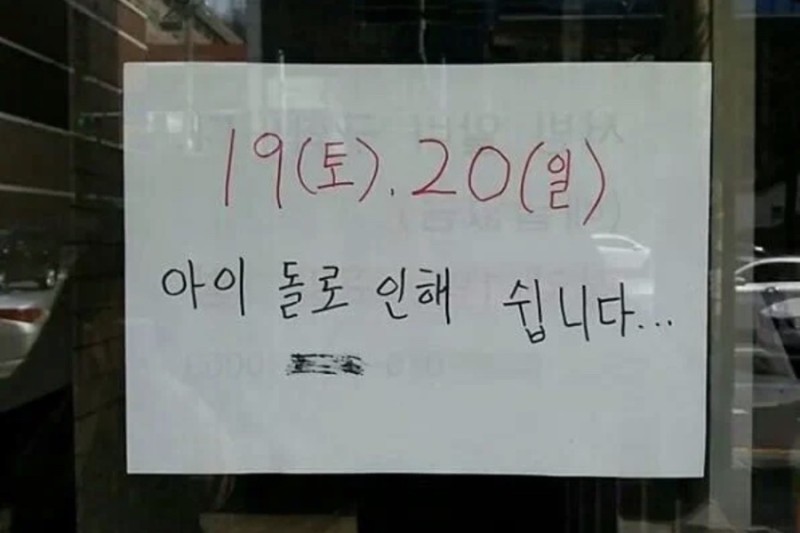 19(토).20(일)
아이 돌로 인해 쉽니다...